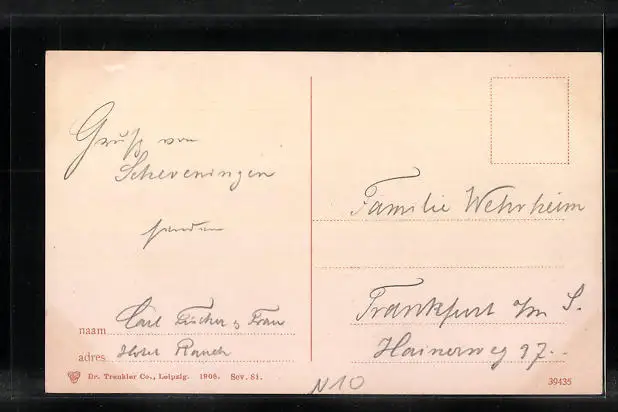 Gruß von
Scheveningen
senden
naam Carl Fischer & Frau
adres Hotel Rauch
Dr. Trenkler Co., Leipzig. 1908. Sev. 81.
Familie Wehrheim
Frankfurt a/m S.
Hainerweg 27.
39435
N10